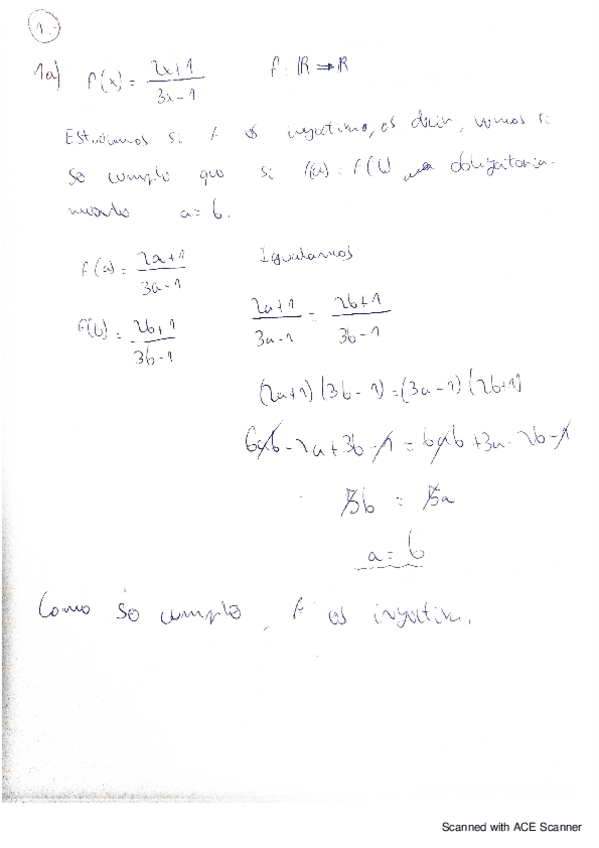 1.-
1a) f(x) = \frac{2x+1}{3x-1} f: ℝ → ℝ
Estudiamos si f es inyectiva, es decir, vemos si
se cumple que si f(a) = f(b) obligatoria-
mente a = b.
f(a) = \frac{2a+1}{3a-1} Igualamos
f(b) = \frac{2b+1}{3b-1} \frac{2a+1}{3a-1} = \frac{2b+1}{3b-1}
(2a+1)(3b-1) = (3a-1)(2b+1)
6ab - 2a + 3b - 1 = 6ab + 3a - 2b - 1
5b = 5a
a = b
Como se cumple, f es inyectiva.
Scanned with ACE Scanner